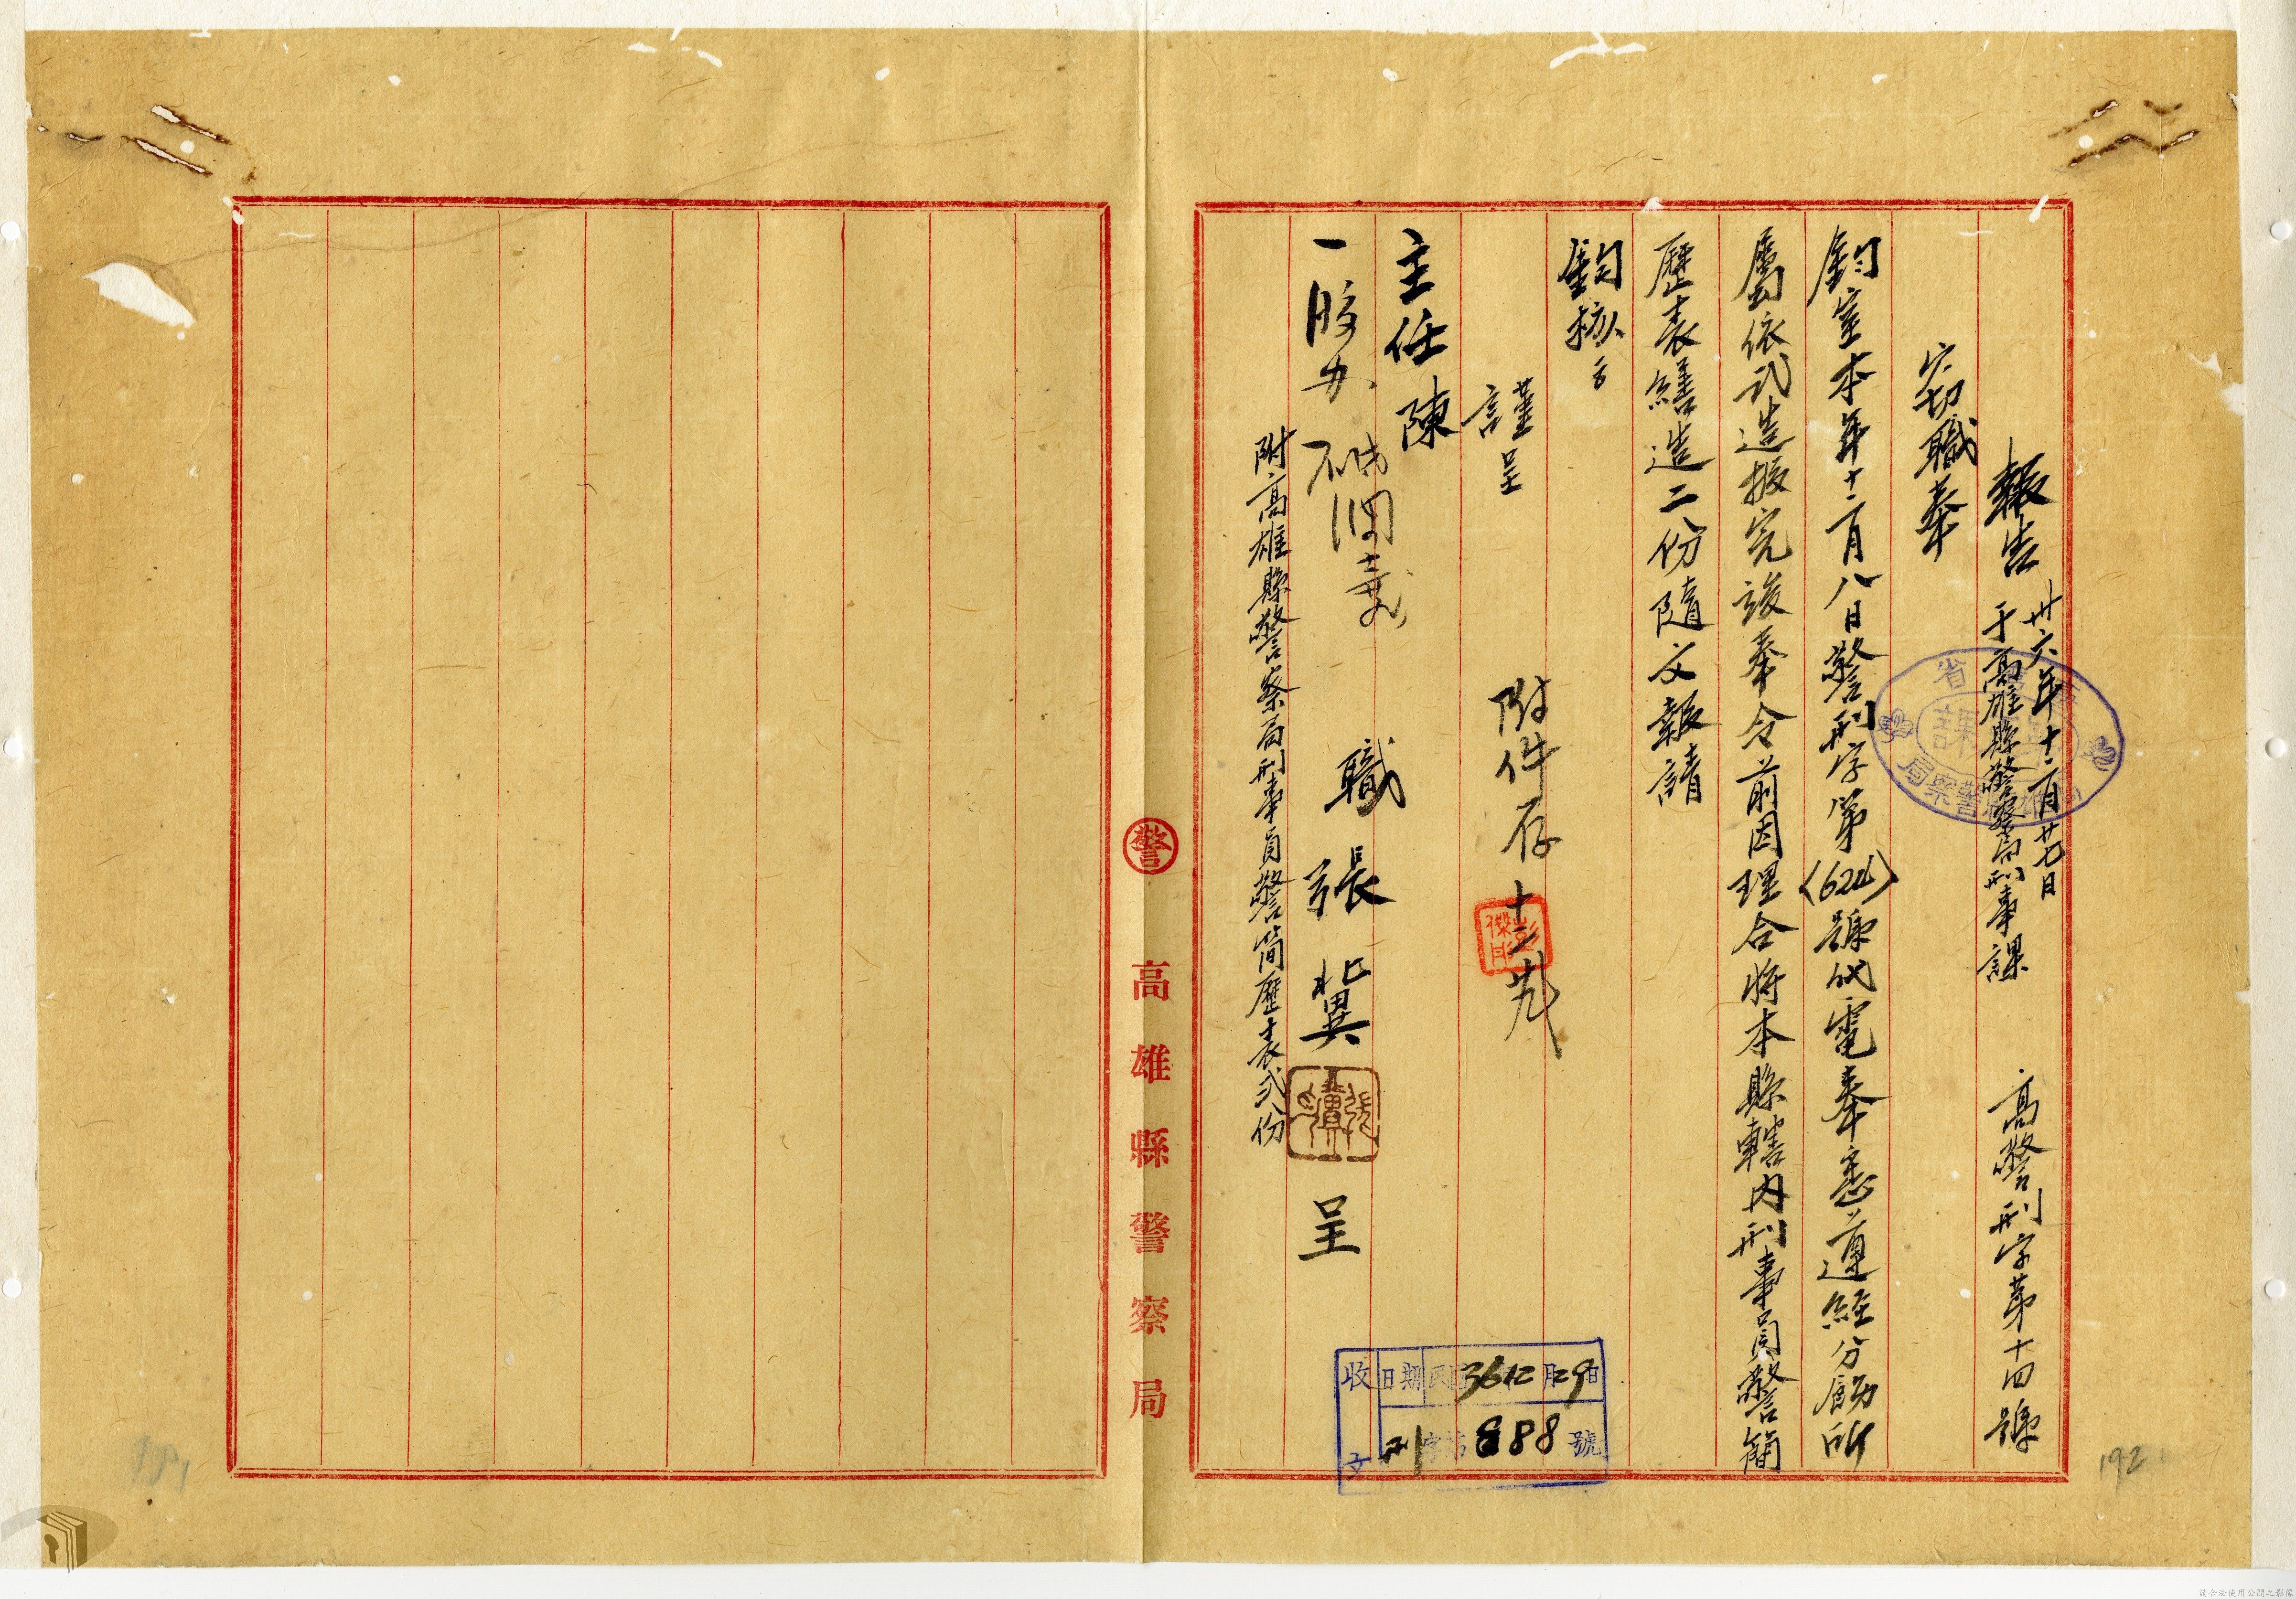 報告 卅六年十二月廿七日
于高雄縣警察局刑事課
高警刑字第十四號
竊職奉
鈞室本年十二月八日警刑字第(624)號代電奉悉遵經分飭所
屬依式造报完竣奉令前因理合將本縣轄內刑事員警簡
歷表繕造二份隨文報請
鈞核
謹呈
主任陳
附件存
職張冀呈
附高雄縣警察局刑事員警简歷表弍份
收文
日期 36 12 月 29 日
刑字第 888 號
警
高雄縣警察局
192
請合法使用公開之影像